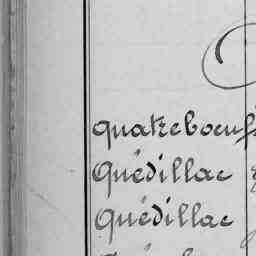 Quatreboeufs
Quédillac
Quédillac